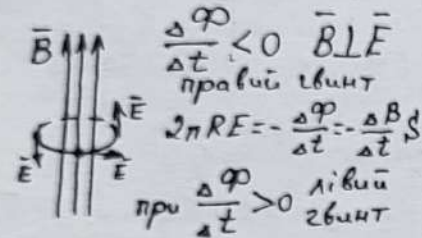 B̄
ΔΦ/Δt < 0 B̄⊥Ē
правий гвинт
2πRE = - ΔΦ/Δt = - ΔB/Δt S
Ē
Ē
Ē
при ΔΦ/Δt > 0 лівий
гвинт